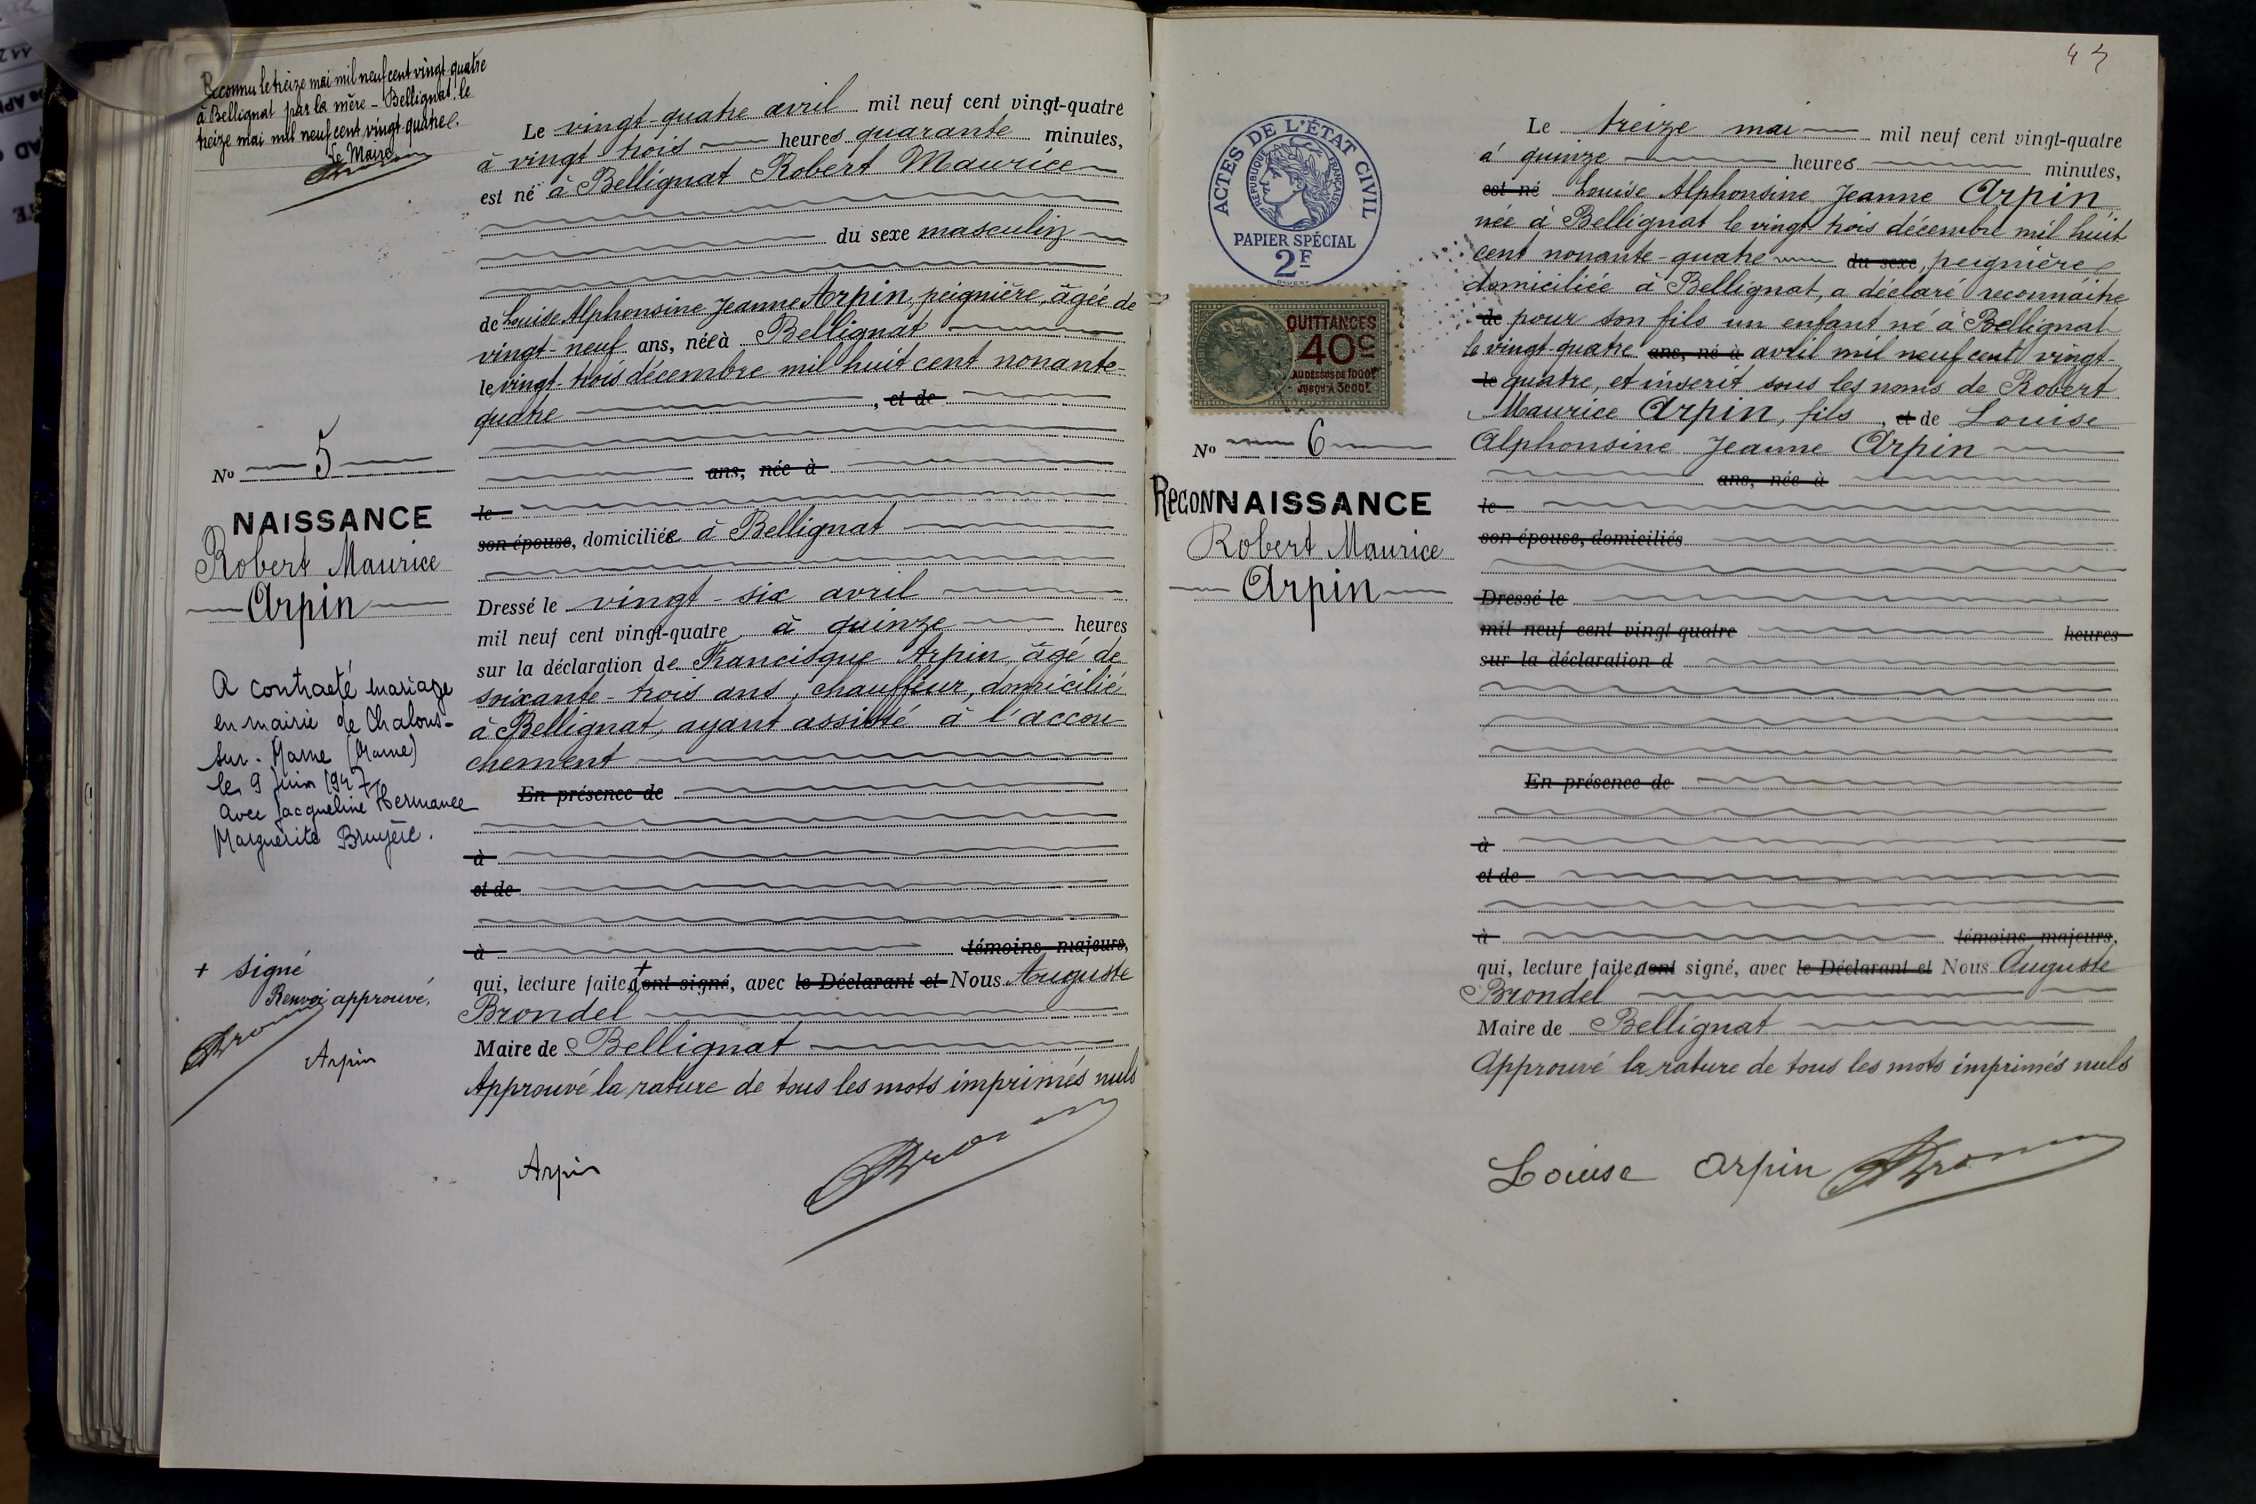 Reconnu le treize mai mil neuf cent vingt quatre
à Bellignat par la mère - Bellignat, le
treize mai mil neuf cent vingt quatre.
Le Maire
Le vingt-quatre avril mil neuf cent vingt-quatre
à vingt trois heures quarante minutes,
est né à Bellignat Robert Maurice
du sexe masculin
de Louise Alphonsine Jeanne Arpin, peignière, âgée de
vingt-neuf ans, née à Bellignat
le vingt-trois décembre mil huit cent nonante-
quatre, et de
ans, née à
le
son épouse, domiciliée à Bellignat
Dressé le vingt-six avril
mil neuf cent vingt-quatre à quinze heures
sur la déclaration de Francisque Arpin, âgé de
soixante-trois ans, chauffeur, domicilié
à Bellignat, ayant assisté à l'accou-
chement
En présence de
à
et de
à témoins majeurs,
qui, lecture faite, + ont signé, avec le Déclarant et Nous Auguste
Brondel
Maire de Bellignat
Approuvé la rature de tous les mots imprimés nuls
Arpin
No 5
NAISSANCE
Robert Maurice
Arpin
A contracté mariage
en mairie de Chalons-
sur-Marne (Marne)
le 9 juin 1947
avec Jacqueline Hermance
Marguerite Bruyère.
+ signé
Renvoi approuvé.
Arpin
ACTES DE L'ÉTAT CIVIL
RÉPUBLIQUE FRANÇAISE
PAPIER SPÉCIAL
2F
QUITTANCES
40c
AU DESSUS DE 1000F
JUSQU'À 3000F
No 6
RECONNAISSANCE
Robert Maurice
Arpin
Le treize mai mil neuf cent vingt-quatre
à quinze heures minutes,
est né Louise Alphonsine Jeanne Arpin
née à Bellignat le vingt trois décembre mil huit
cent nonante-quatre du sexe, peignière
domiciliée à Bellignat, a déclaré reconnaitre
de pour son fils un enfant né à Bellignat
le vingt-quatre ans, né à avril mil neuf cent vingt-
le quatre, et inscrit sous les noms de Robert
Maurice Arpin, fils, et de Louise
Alphonsine Jeanne Arpin
ans, née à
le
son épouse, domiciliés
Dressé le
mil neuf cent vingt quatre heures
sur la déclaration d
En présence de
à
et de
à témoins majeurs,
qui, lecture faite, a ont signé, avec le Déclarant et Nous Auguste
Brondel
Maire de Bellignat
Approuvé la rature de tous les mots imprimés nuls
Louise Arpin